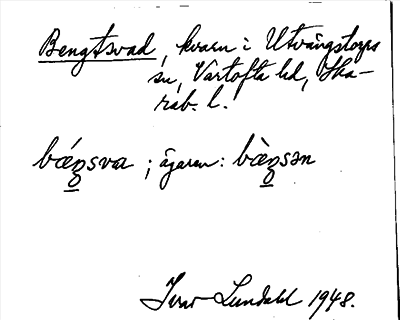 Bengtsvad, kvarn i Utvängstorps
sn, Vartofta hd, Ska-
rab. l.
bǽŋsva ; ägaren: bæ̀ŋsən
Ivar Lundahl 1948.